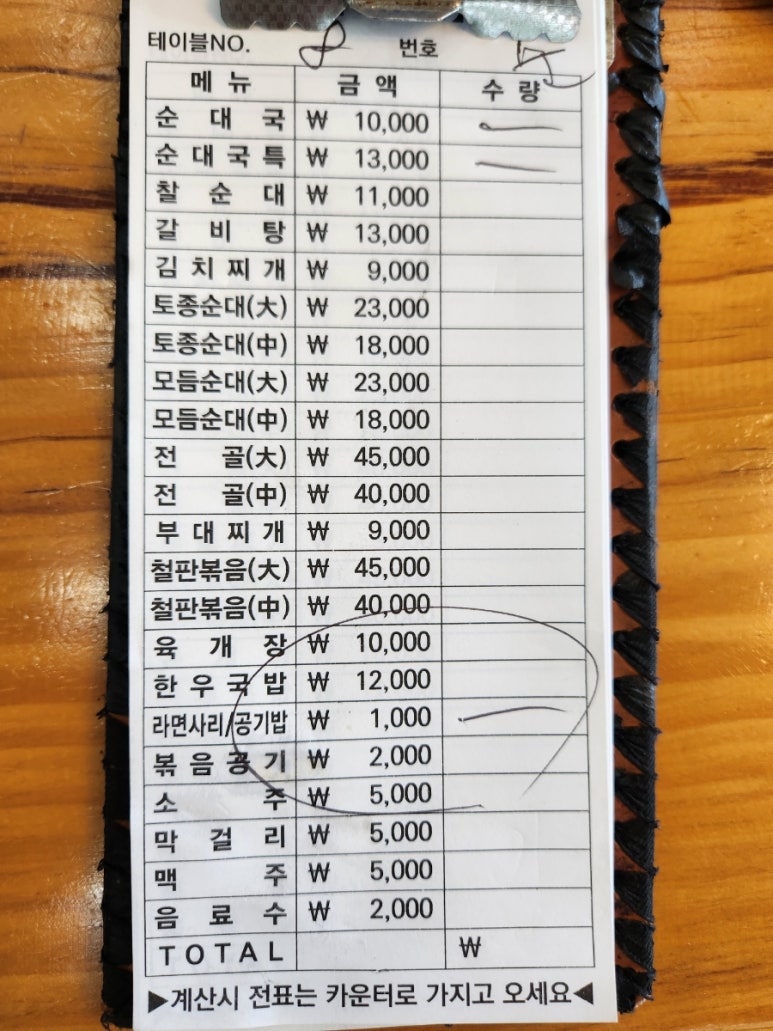 테이블NO. 8 번호
메 뉴 금 액 수 량
순 대 국 ₩ 10,000 一
순 대 국 특 ₩ 13,000 一
찰 순 대 ₩ 11,000
갈 비 탕 ₩ 13,000
김 치 찌 개 ₩ 9,000
토종순대(大) ₩ 23,000
토종순대(中) ₩ 18,000
모듬순대(大) ₩ 23,000
모듬순대(中) ₩ 18,000
전 골(大) ₩ 45,000
전 골(中) ₩ 40,000
부 대 찌 개 ₩ 9,000
철판볶음(大) ₩ 45,000
철판볶음(中) ₩ 40,000
육 개 장 ₩ 10,000
한 우 국 밥 ₩ 12,000
라면사리/공기밥 ₩ 1,000 一
볶 음 공 기 ₩ 2,000
소 주 ₩ 5,000
막 걸 리 ₩ 5,000
맥 주 ₩ 5,000
음 료 수 ₩ 2,000
TOTAL ₩
▶계산시 전표는 카운터로 가지고 오세요◀